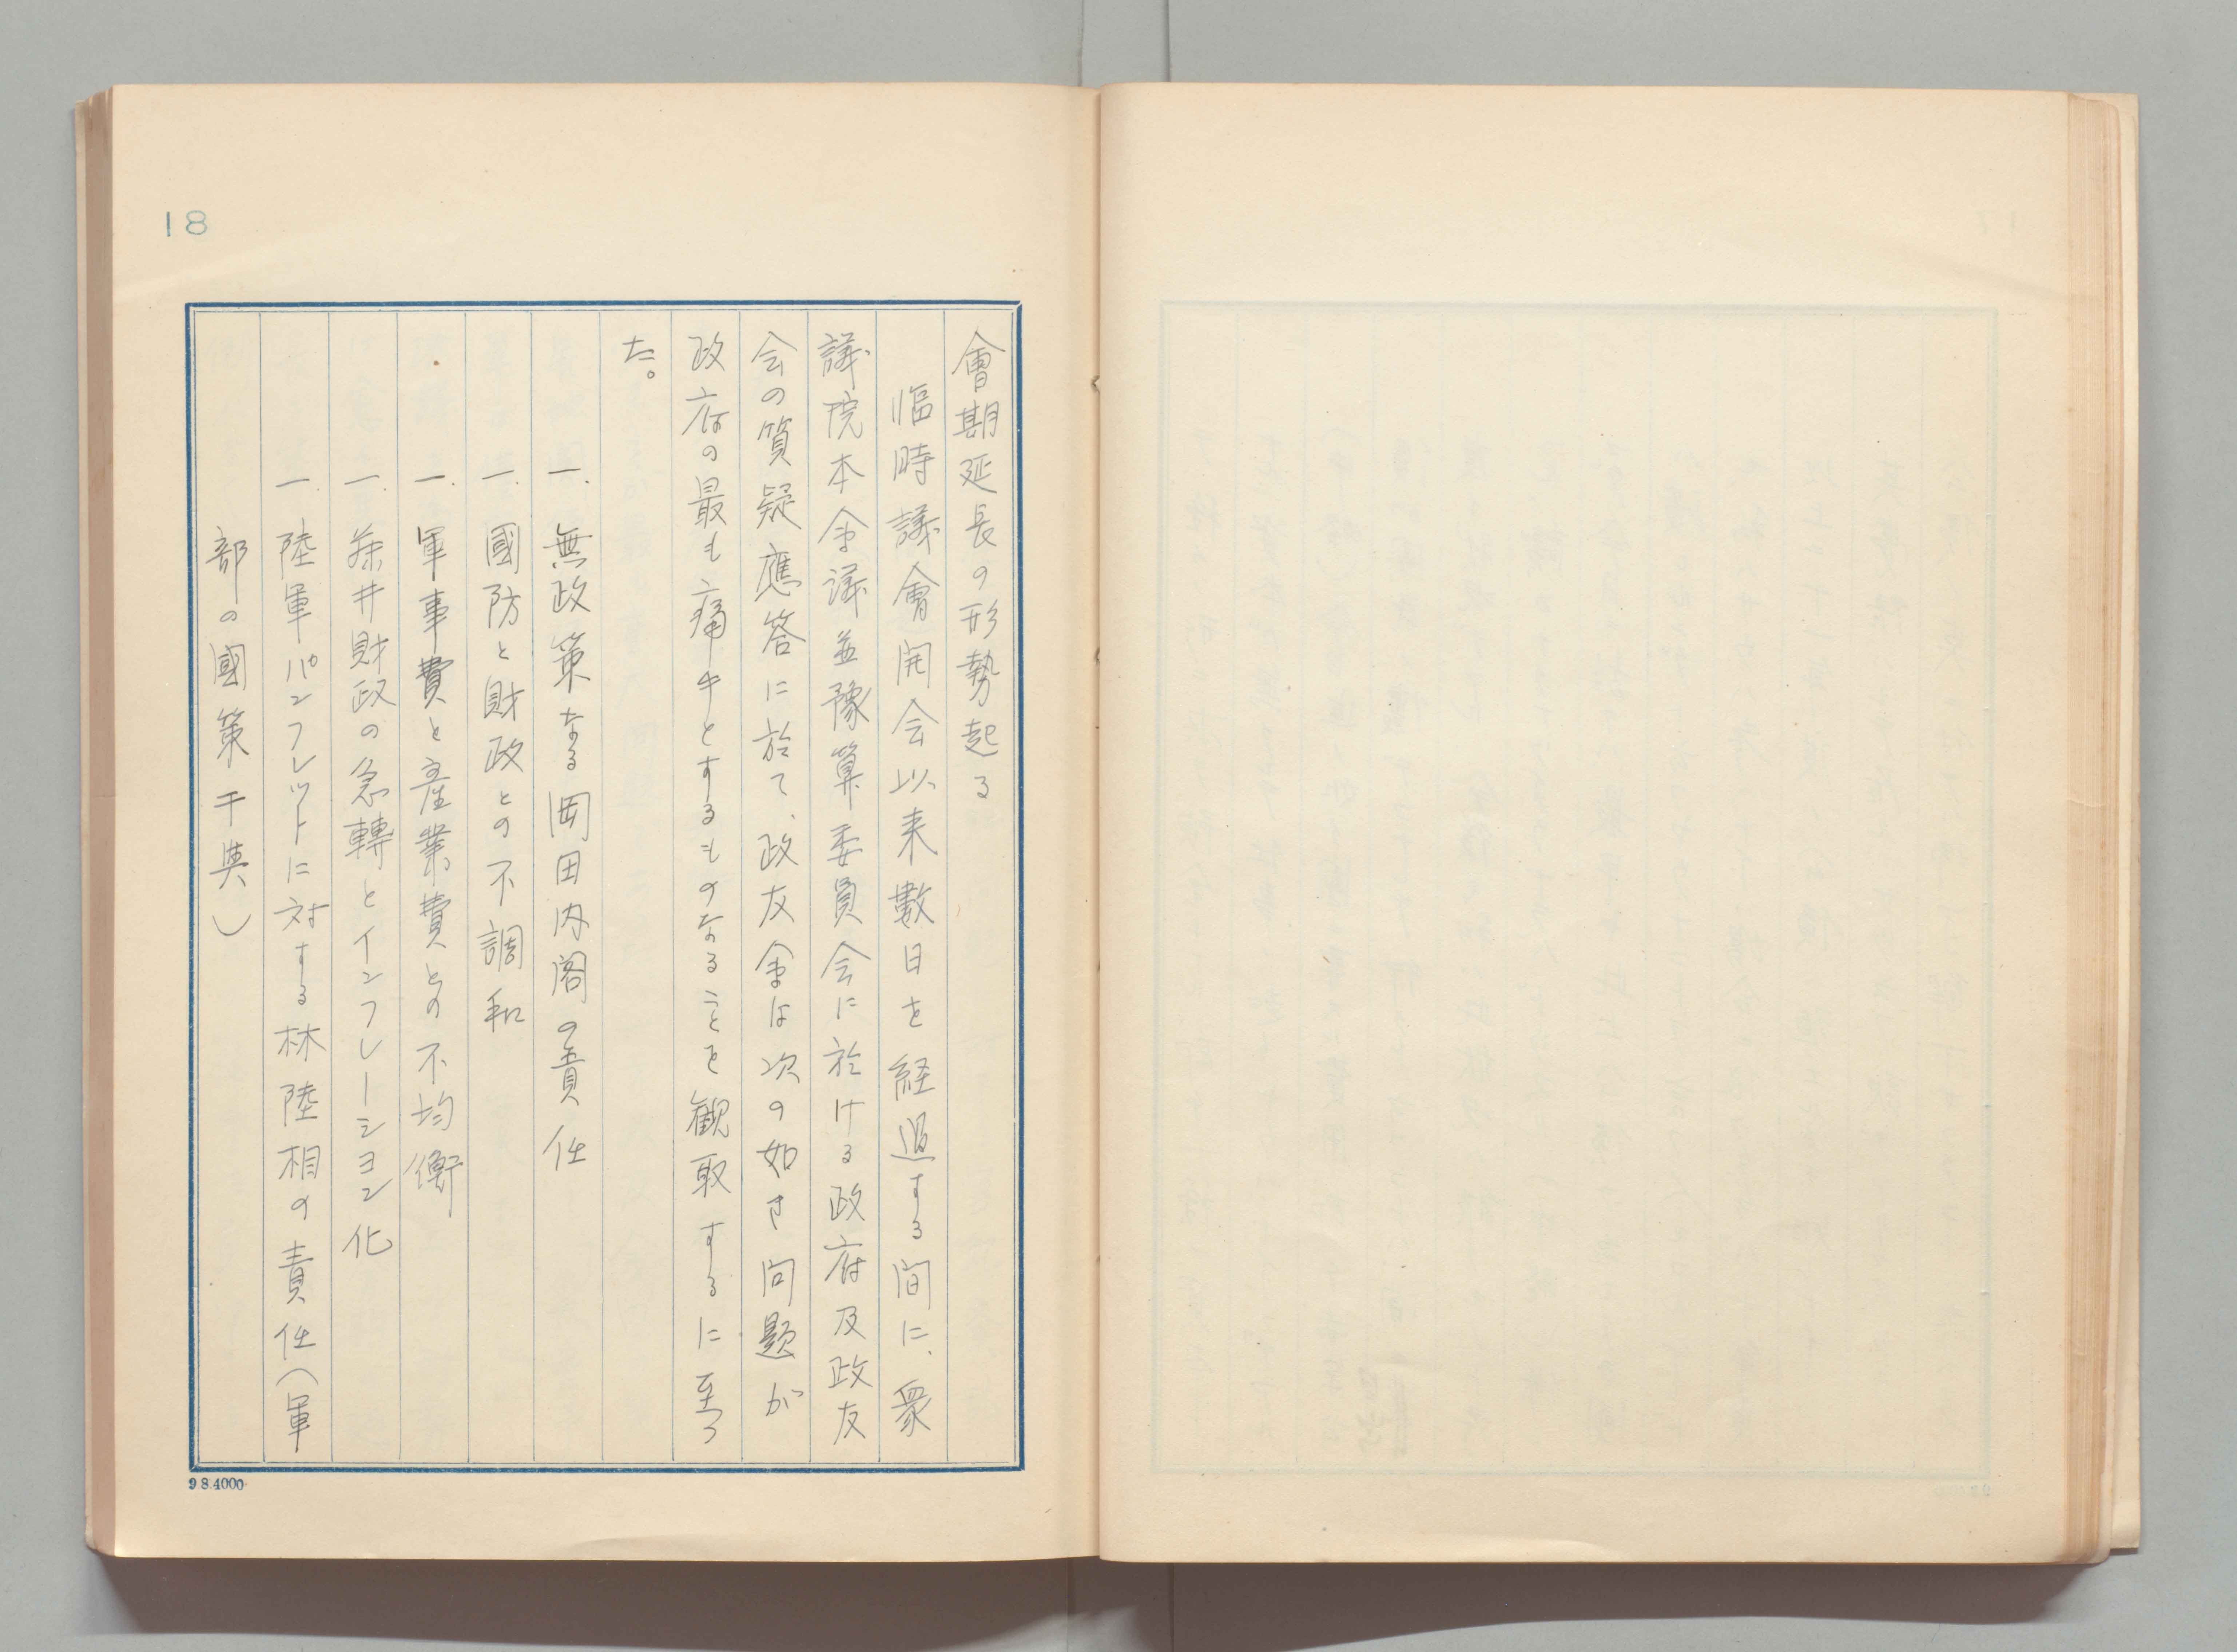 18
會期延長の形勢起る
臨時議會開会以来數日を経過する間に、衆
議院本会議並豫算委員会に於ける政府及政友
会の質疑應答に於て、政友会は次の如き問題が
政府の最も痛手とするものなることを観取するに至つ
た。
一、無政策なる岡田内閣の責任
一、國防と財政との不調和
一、軍事費と産業費との不均衡
一、藤井財政の急轉とインフレーション化
一、陸軍パンフレットに対する林陸相の責任（軍
部の國策干與）
9.8.4000